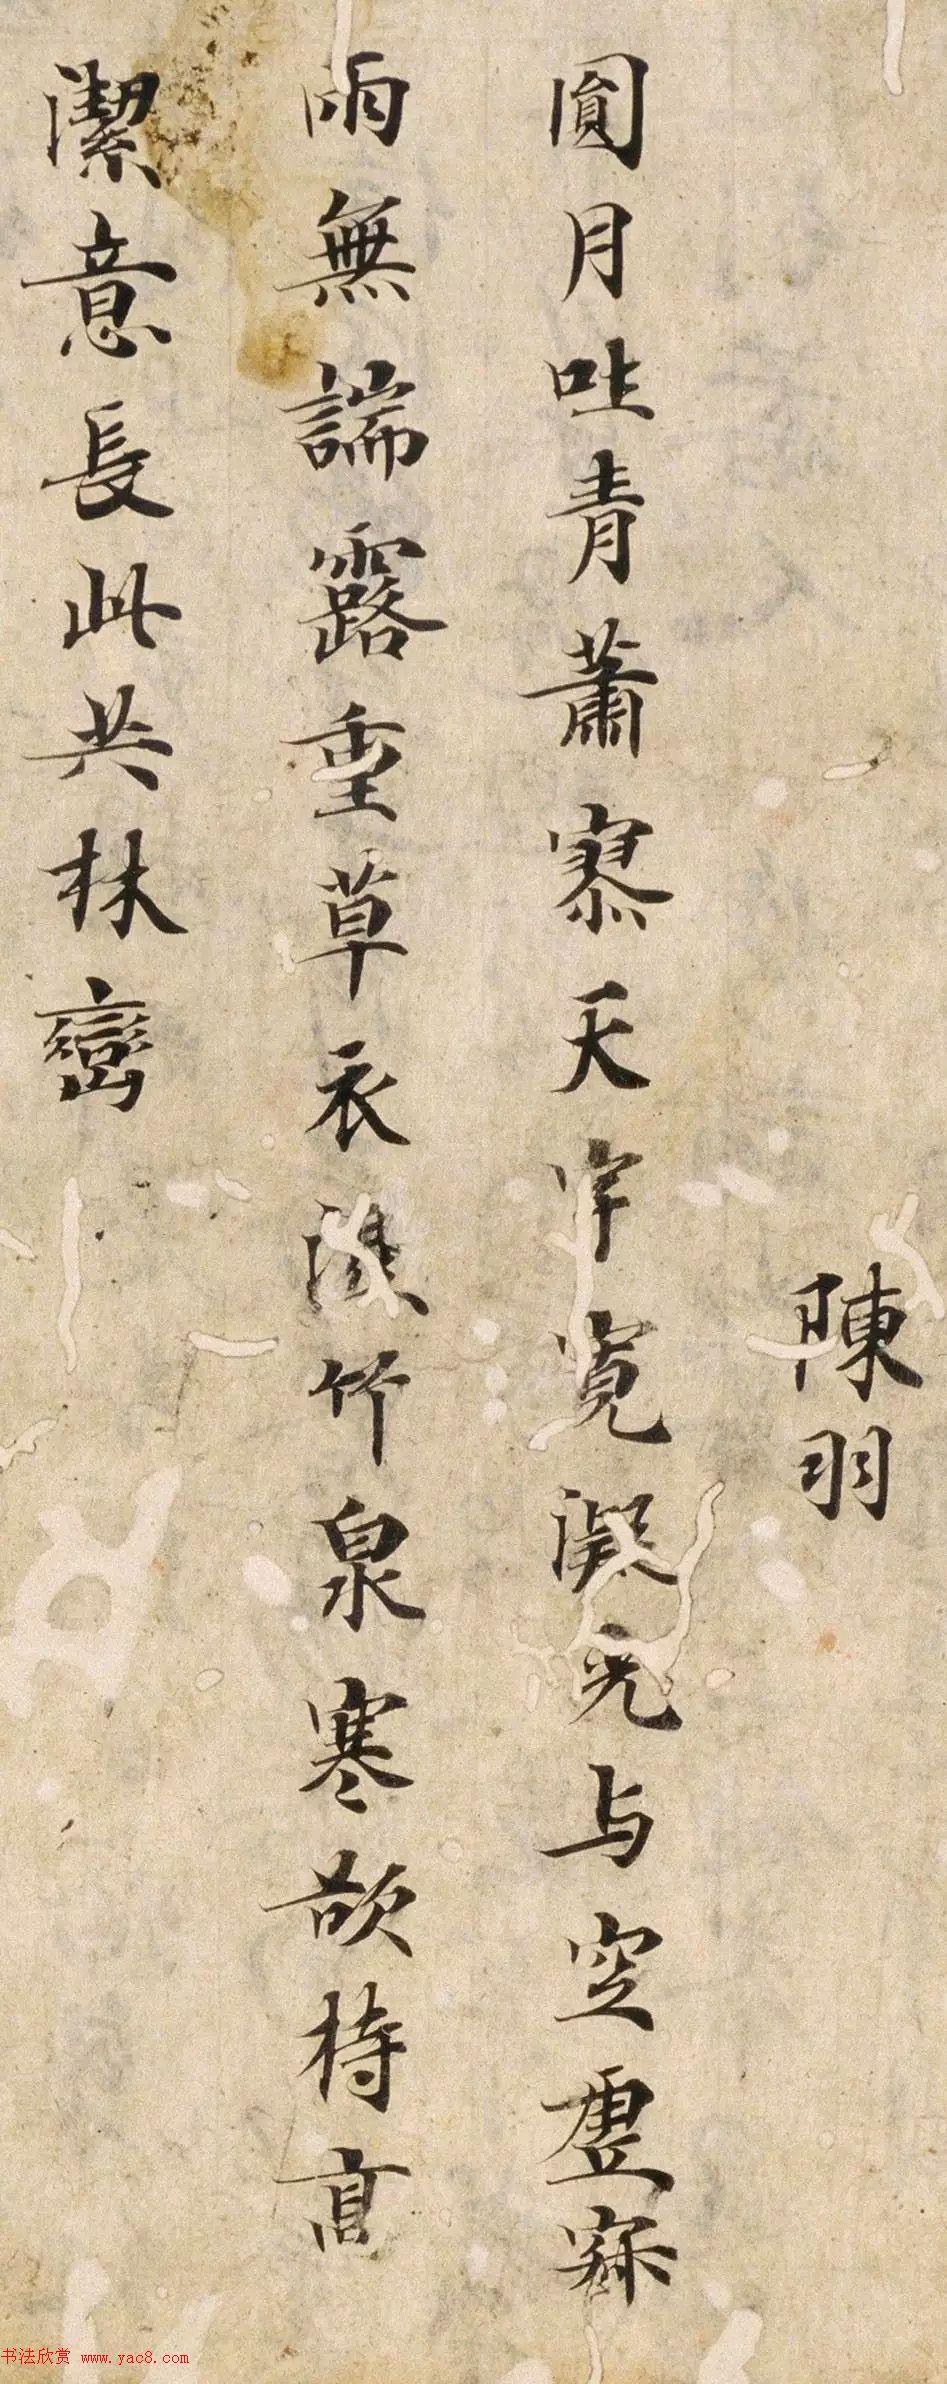 陳羽
圓月吐青蕭寥天宇寬凝光与空虛寂
兩無端露重草衣濕竹泉寒欲持高
潔意長此共林巒
书法欣赏 www.yac8.com